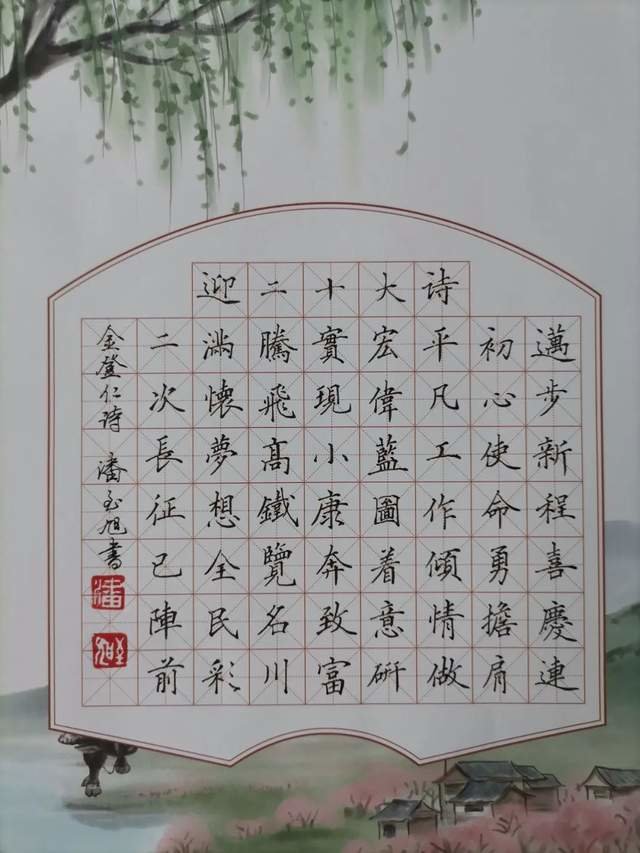 迎二十大诗
邁步新程喜慶連
初心使命勇擔肩
平凡工作傾情做
宏偉藍圖着意研
實現小康奔致富
騰飛髙鐵覽名川
滿懷夢想全民彩
二次長征已陣前
金登仁诗 潘玉旭書
潘